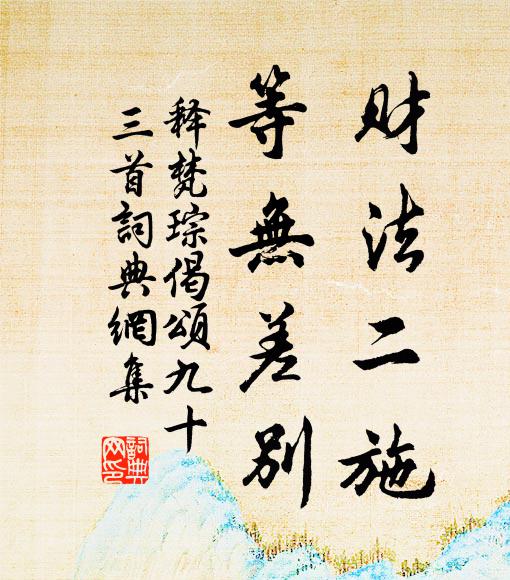 财法二施
等無差别
释梵琮偈頌九十
三首詞典網集
詞典
网印